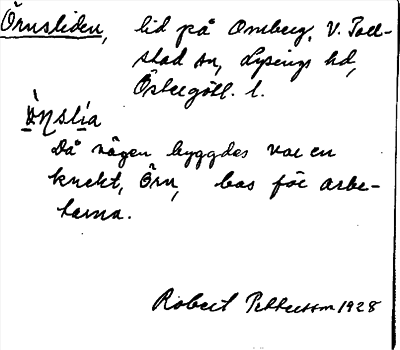 Örnsliden, lid på Omberg, V. Toll-
stad sn, Lysings hd,
Östergötl. l.
Då vägen byggdes var en
knekt, Örn, bas för arbe-
tarna.
Robert Pettersson 1928